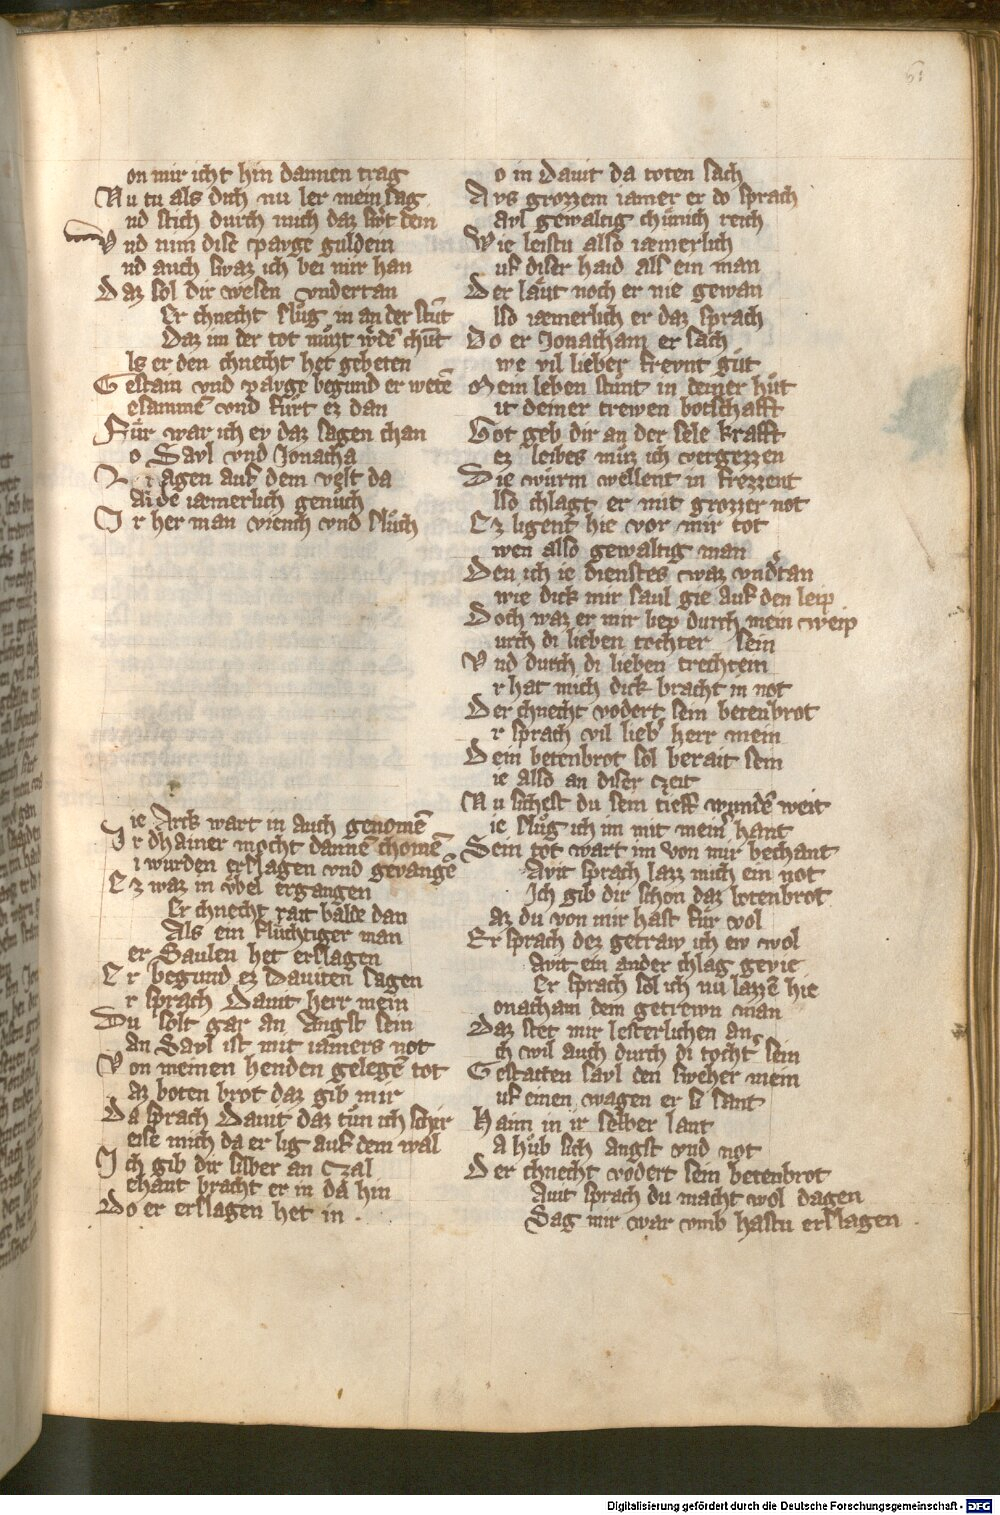 61
on mir icht hin dannen trag
Nu tu als dich nu ler mein sag
nd stich durch mich daz swt dein
Vnd nim dise pavge guldein
nd auch swaz ich bei mir han
Daz sol dir wesen vndertan
Er chnecht slůg in an der stůt
Daz im der tot můzt wˀdē chūt
ls er den chnecht het gebeten
Gestain vnd pavge begund er wetē
esammē vnd fůrt ez dan
Fůr war ich ev daz sagen chan
o Savl vnd Jonacha
agen auf dem velt da
Baide iæmerlich genůch
Ir her man viench vnd slůch
ie Arck wart in auch genomē
Ir dhainer mocht dannē chomē
i wurden erslagen vnd gevangē
Ez waz in vbel ergangen
Er chnecht rait balde dan
Als ein fluchtiger man
er Saulen het erslagen
Er begund ez Dauiten sagen
r sprach Dauit herr mein
Du solt gar an angst sein
an Savl ist mit iamers not
Von meinen henden gelegē tot
az boten brot daz gib mir
Da sprach Dauit daz tůn ich schir
eise mich da er lig auf dem wal
Ich gib dir silber an czal
ehant bracht er in da hin
Do er erslagen het in .
o in Dauit da toten sach
Avs grozzem iamer er do sprach
avl gewaltig chůnich reich
Wie leistu also iæmerlich
uf diser haid als ein man
Der laůt noch er nie gewan
lso iæmerlich er daz sprach
Do er Jonacham er sach
we vil lieber frevnt gůt
Mein leben stůnt in deiner hůt
it deiner trewen botschafft
Got geb dir an der sele krafft
ez leibes můz ich vergezzen
Die würm wellent in frezzent
lso chlagt er mit grozzer not
Ez ligent hie vor mir tot
wen also gewaltig man
Den ich ie dienstes waz vndˀtan
wie dick mir saul gie auf den leip
Doch waz er mir liep durch mein weip
urch di lieben tochter sein
Vnd durch di lieben trechtein
r hat mich dick bracht in not
Der chnecht vodert sein betenbrot
r sprach vil liebˀ herr mein
Dein betenbrot sol berait sein
ie also an diser czeit
Nu sichest du sein tieff wundē weit
ie slůg ich im mit meinˀ hant
Sein tot wart im von mir bechant
Avit sprach lazz mich ein not
Ich gib dir schon daz botenbrot
az du von mir hast fůr wol
Er sprach dez getraw ich ew wol
Avit ein ander chlag gevie
Er sprach sol ich nu lazzē hie
onacham dem getrewn man
Daz stet mir lesterlichen an
ch wil auch durch di tochtˀ sein
Gestatten savl den sweher mein
uf einen wagen er si sant
Haim in ir selber lant
a hůb sich angst vnd not
Der chnecht vodert sein betenbrot
Auit sprach du macht wol dagen
Sag mir war vmb hastu erslagen
Digitalisierung gefördert durch die Deutsche Forschungsgemeinschaft - DFG